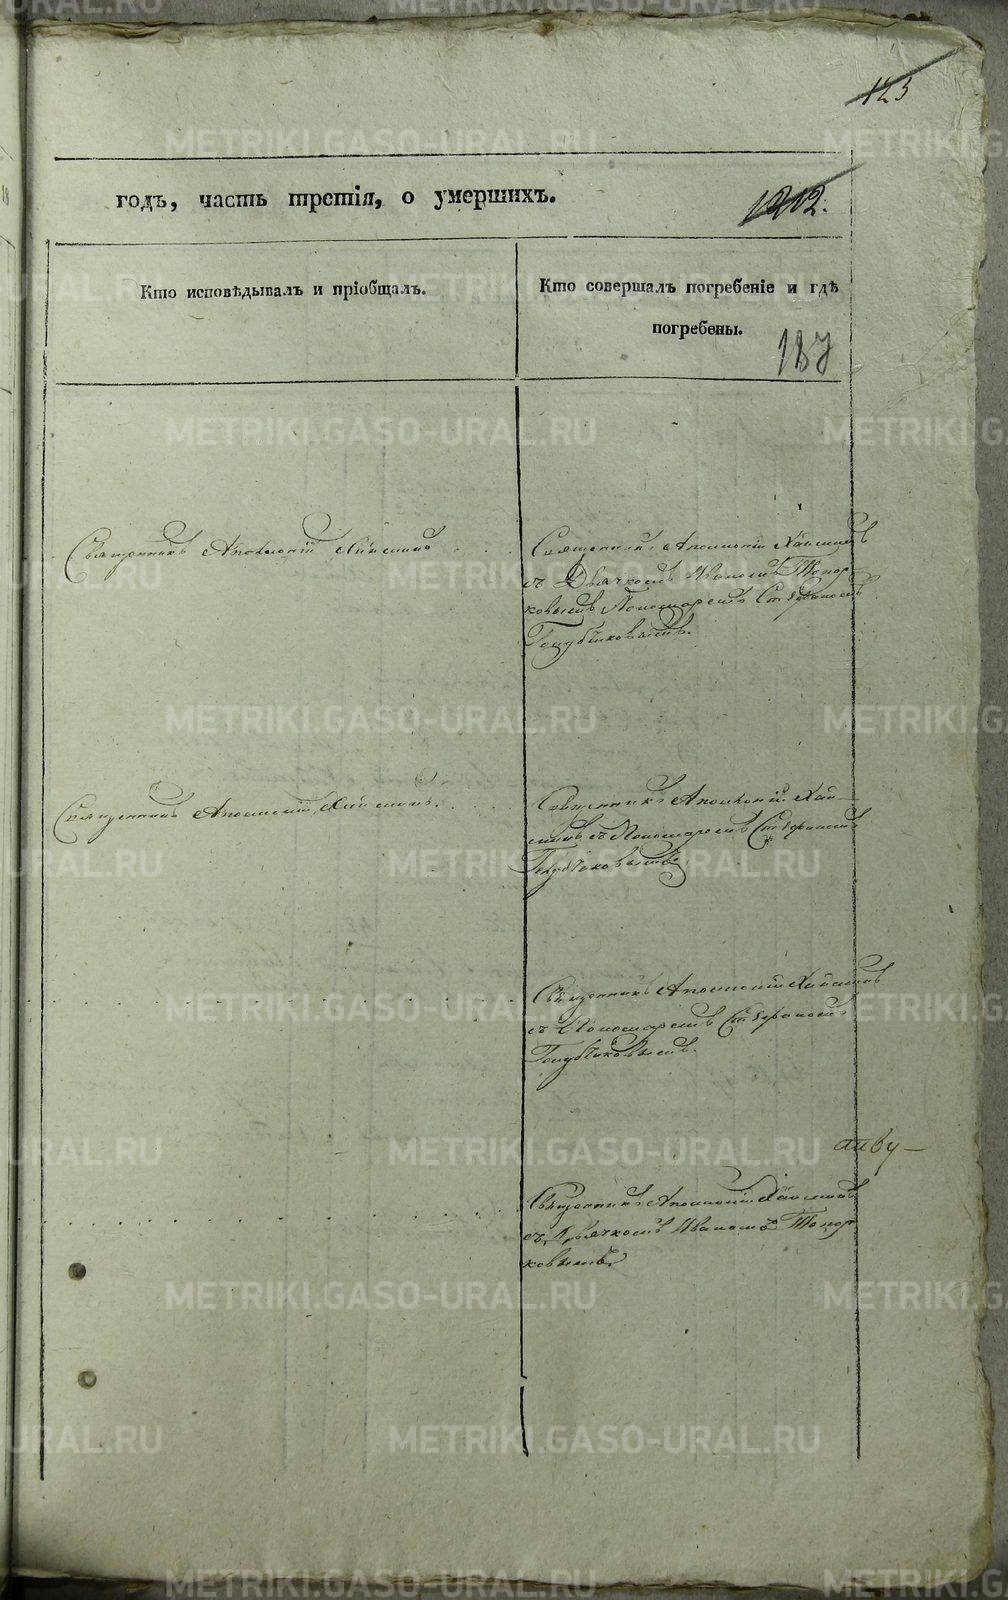 123
годъ, часть третія, о умершихъ.
1212.
Кто исповѣдывалъ и пріобщалъ.
Кто совершалъ погребеніе и гдѣ
погребены.
187
Священникъ Аполлоній
Священникъ Аполлоній
съ Дьячкомъ Иваномъ Топор-
ковымъ Пономаремъ Стефаномъ
Голубчиковымъ.
Священникъ Аполлоній
Священникъ Аполлоній
съ Пономаремъ Стефаномъ
Голубчиковымъ
Священникъ Аполлоній
съ Пономаремъ Стефаномъ
Голубчиковымъ.
Священникъ Аполлоній
съ Дьячкомъ Иваномъ Топор-
ковымъ
METRIKI.GASO-URAL.RU